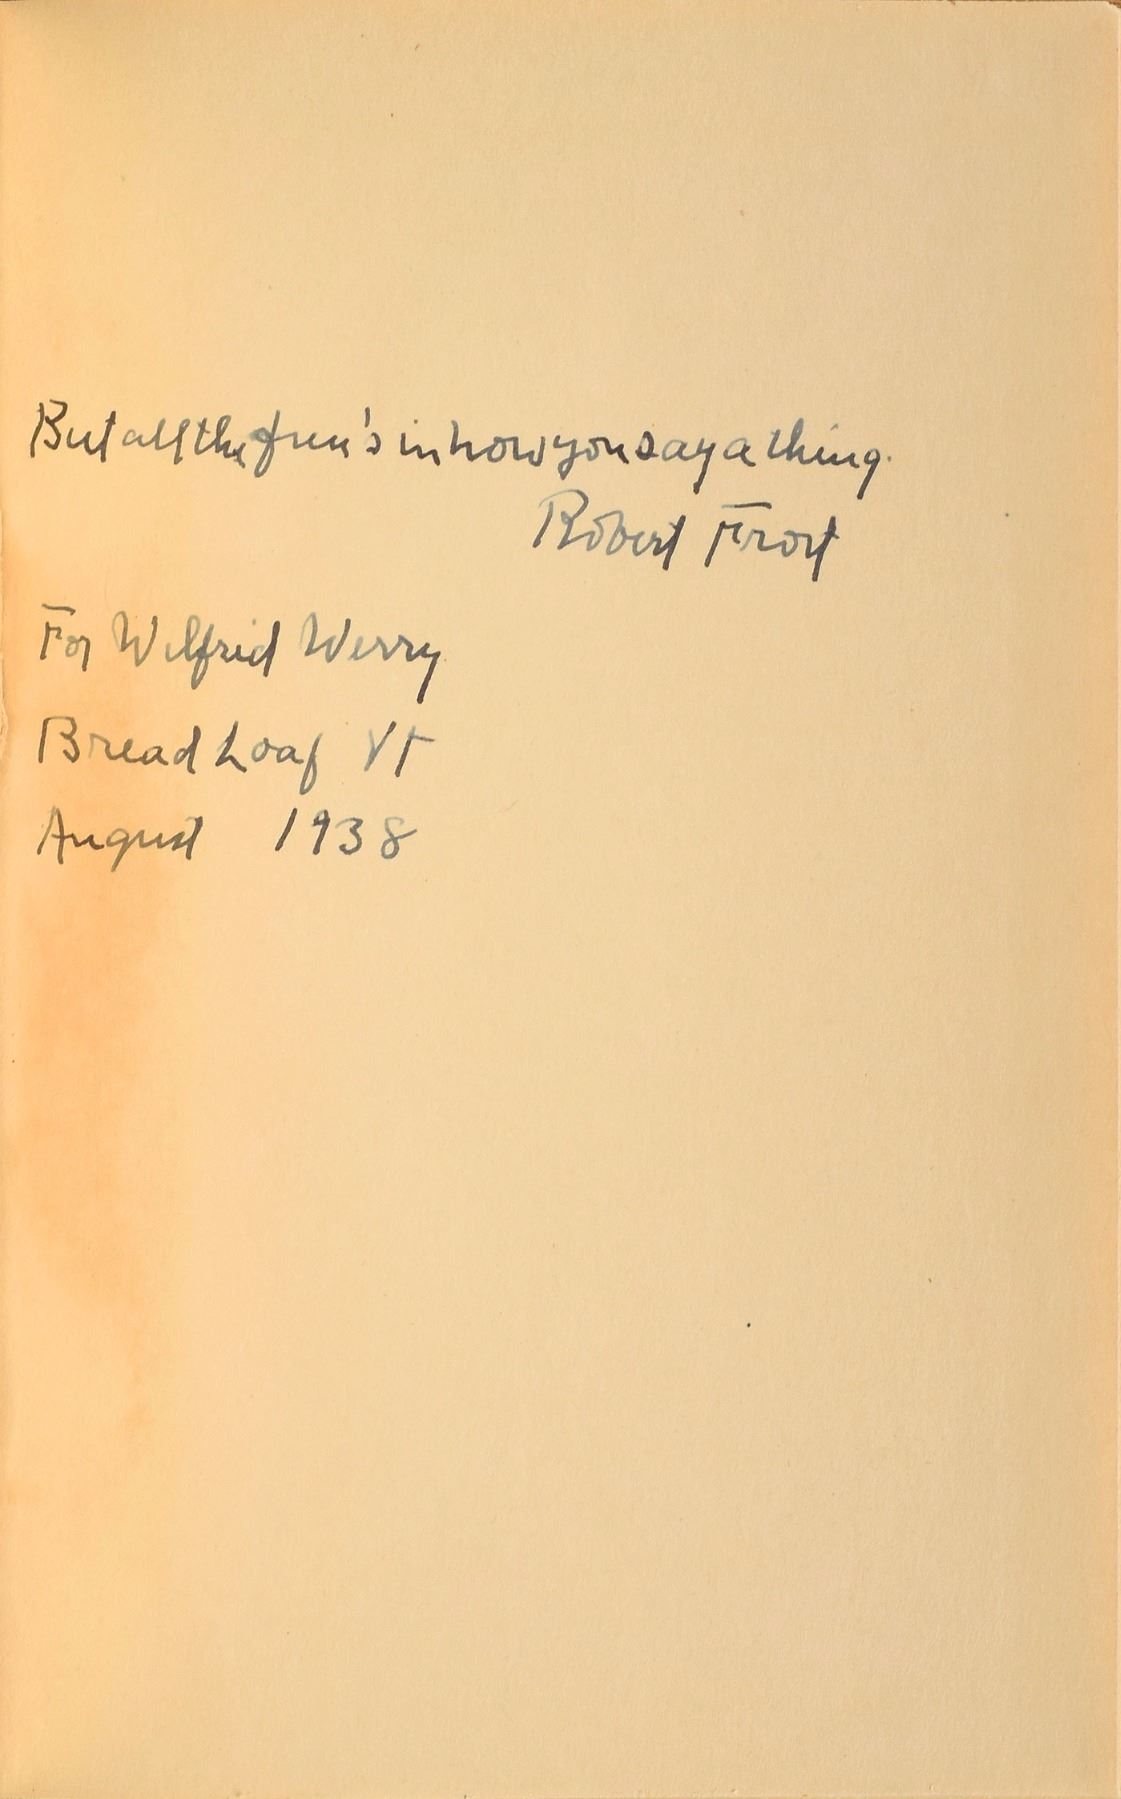 But all the fun's in how you say a thing.
Robert Frost
For Wilfrid Werry
Bread Loaf Vt
August 1938